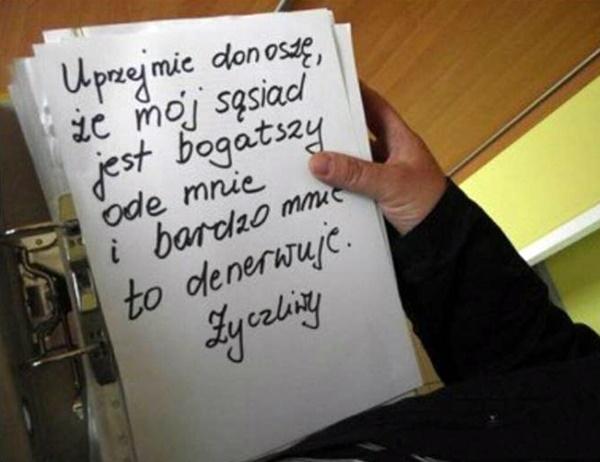 Uprzejmie donoszę,
że mój sąsiad
jest bogatszy
ode mnie
i bardzo mnie
to denerwuje.
Życzliwy